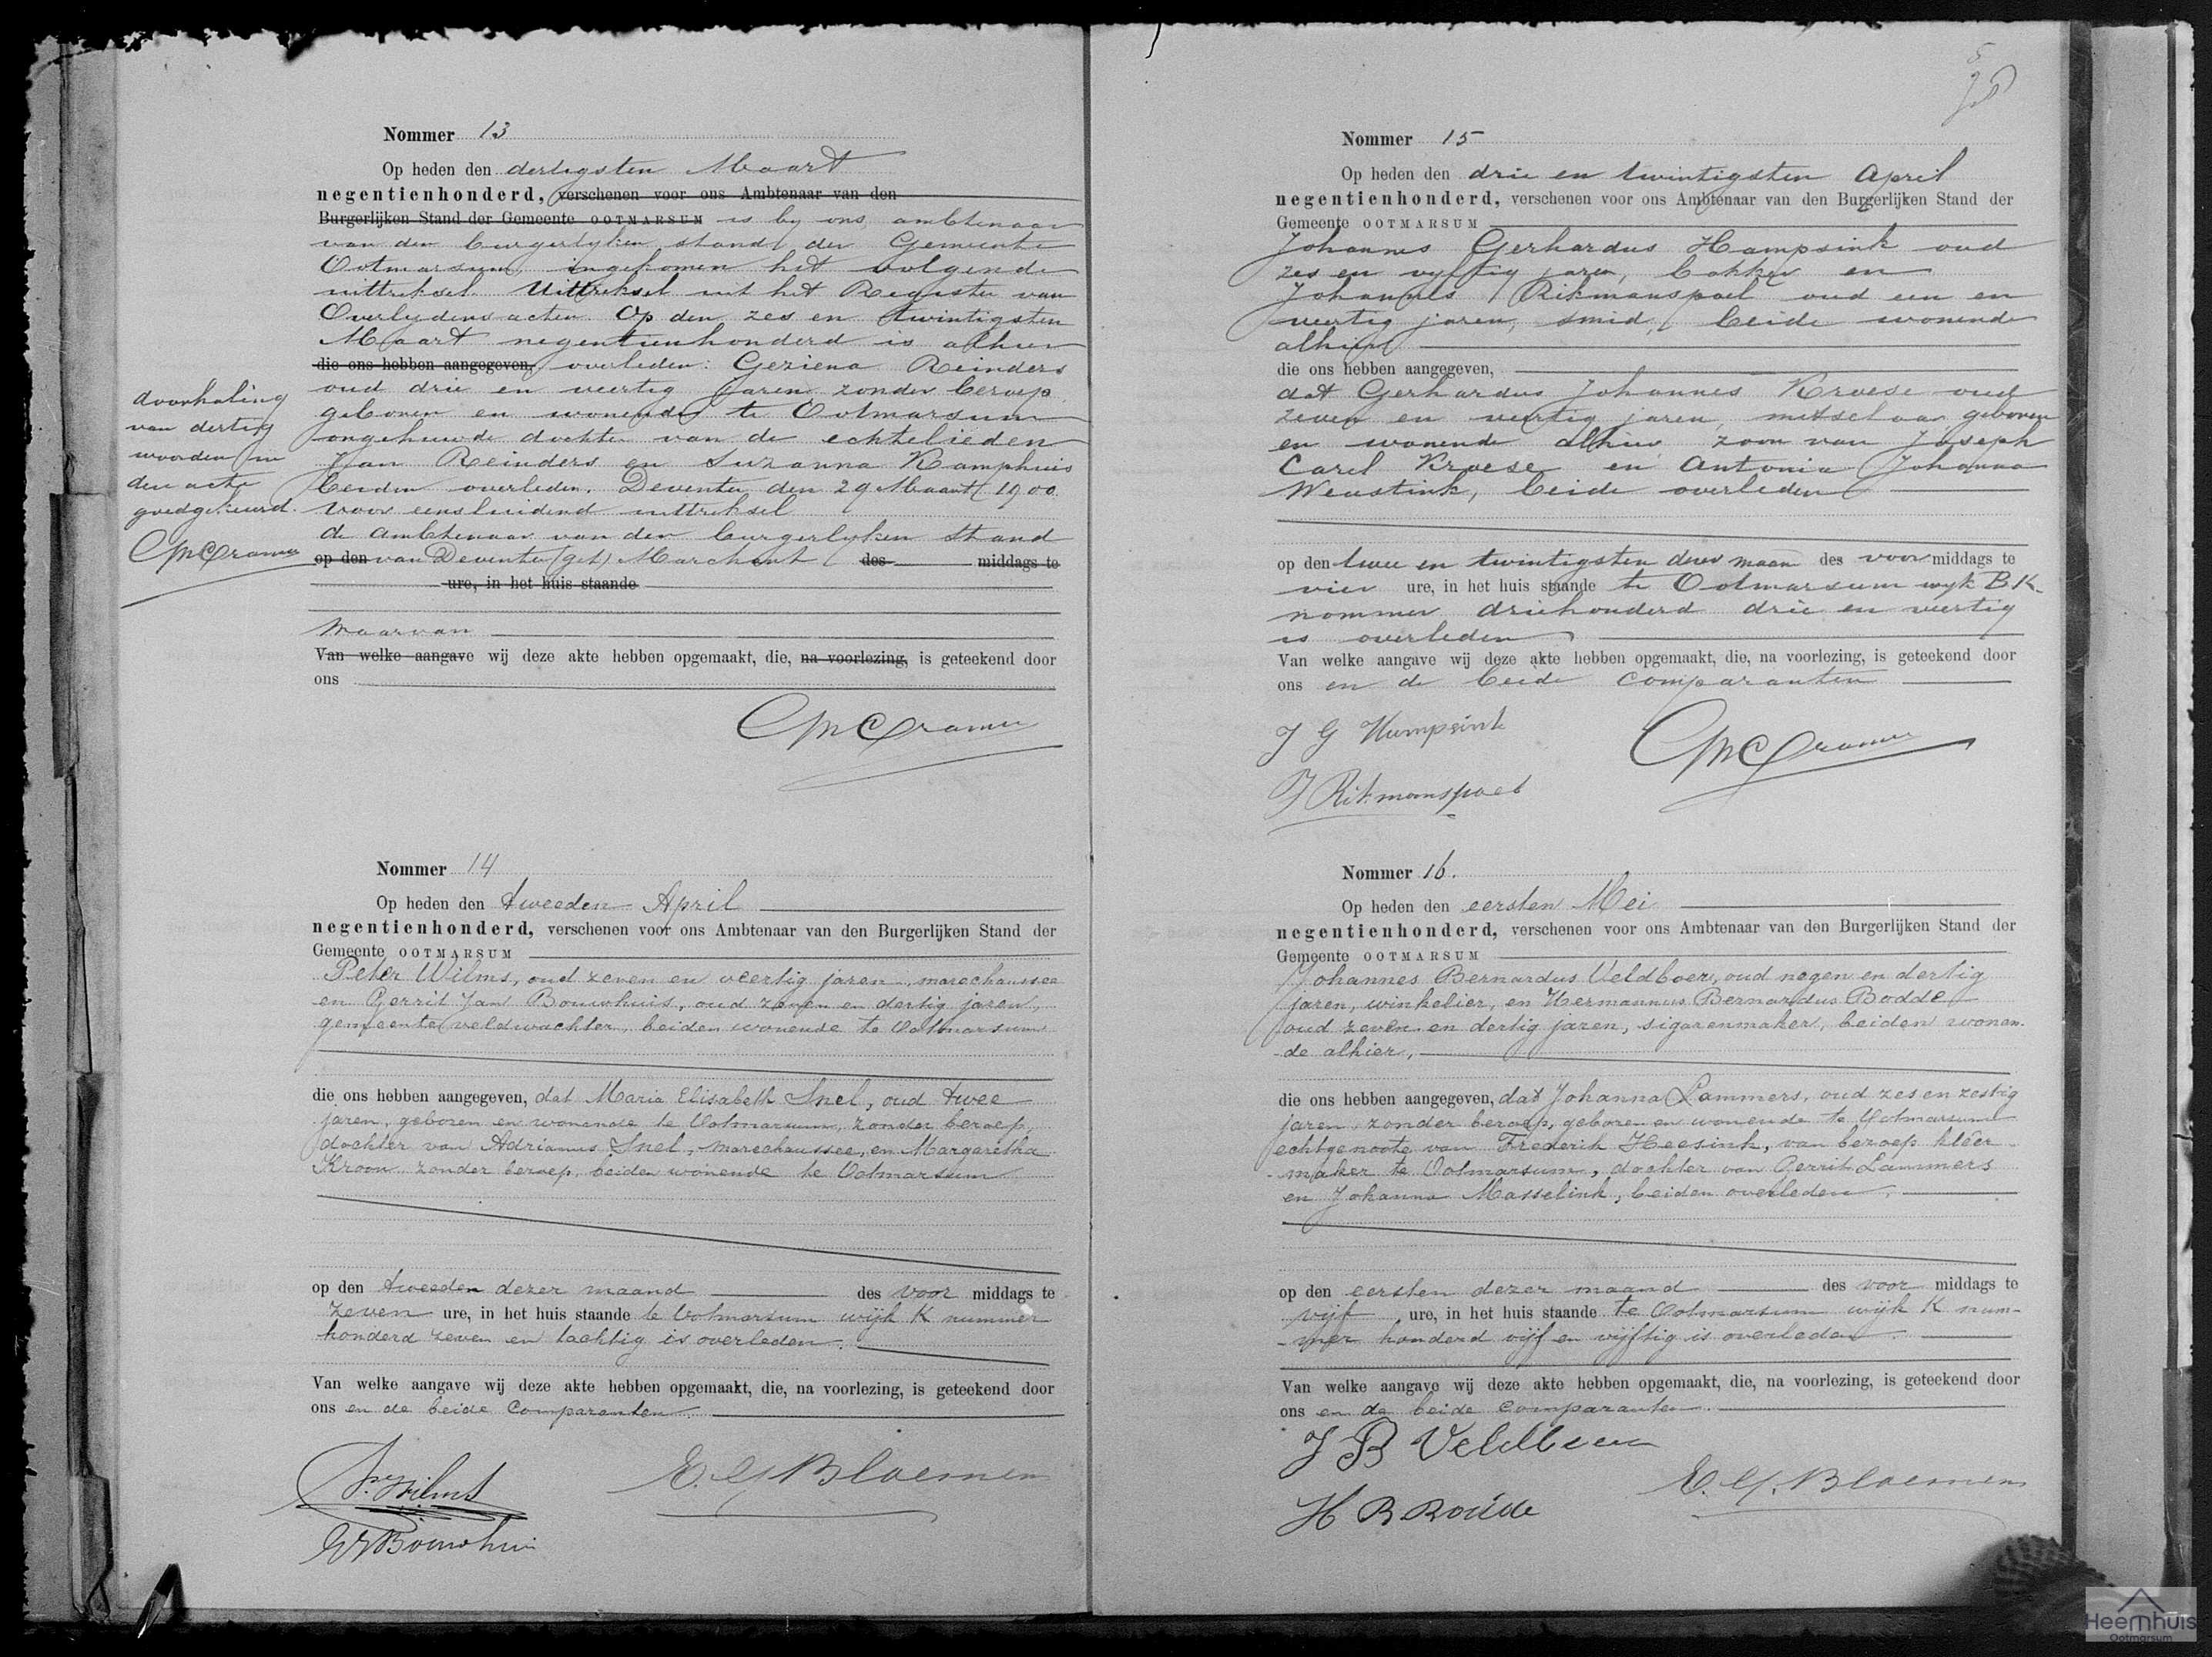 Nommer 13
Op heden den dertigsten Maart
negentienhonderd, verschenen voor ons Ambtenaar van den
Burgerlijken Stand der Gemeente OOTMARSUM is by ons ambtenaar
van den burgerlyken stand der Gemeente
Ootmarsum ingekomen het volgende
uittreksel. Uittreksel uit het Register van
Overlydens acten. Op den zes en twintigsten
Maart negentienhonderd is alhier
die ons hebben aangegeven, overleden: Geziena Reinders
oud drie en veertig jaren zonder beroep
geboren en wonende te Ootmarsum
ongehuwde dochter van de echtelieden
Jan Reinders en Suzanna Kamphuis
beiden overleden. Deventer den 29 Maart 1900.
Voor eensluidend uittreksel
de ambtenaar van den burgerlyken stand
op den van Deventer (get) Marchant des middags te
ure, in het huis staande
Waarvan
Van welke aangave wij deze akte hebben opgemaakt, die, na voorlezing, is geteekend door
ons
doorhaling
van dertig
woorden in
den acte
goedgekeurd.
Cramer
Cramer
Nommer 14
Op heden den tweeden April
negentienhonderd, verschenen voor ons Ambtenaar van den Burgerlijken Stand der
Gemeente OOTMARSUM
Peter Wilms, oud zeven en veertig jaren, marechaussee
en Gerrit Jan Bouwhuis, oud zeven en dertig jaren,
gemeente veldwachter, beiden wonende te Ootmarsum
die ons hebben aangegeven, dat Maria Elisabeth Snel, oud twee
jaren, geboren en wonende te Ootmarsum, zonder beroep,
dochter van Adrianus Snel, marechaussee, en Margaretha
Kroon zonder beroep, beiden wonende te Ootmarsum
op den tweeden dezer maand des voor middags te
zeven ure, in het huis staande te Ootmarsum wijk K nummer
honderd zeven en tachtig is overleden.
Van welke aangave wij deze akte hebben opgemaakt, die, na voorlezing, is geteekend door
ons en de beide Comparanten.
P. Wilms
E. G. Bloemen
GJ Bouwhuis
Nommer 15
Op heden den drie en twintigsten April
negentienhonderd, verschenen voor ons Ambtenaar van den Burgerlijken Stand der
Gemeente OOTMARSUM
Johannes Gerhardus Hampsink oud
zes en vyftig jaren, bakker en
Johannes Rikmanspoel oud een en
veertig jaren, smid, beide wonende
alhier
die ons hebben aangegeven,
dat Gerhardus Johannes Kroese oud
zeven en veertig jaren, metselaar geboren
en wonende alhier zoon van Joseph
Carel Kroese en Antonia Johanna
Weustink, beide overleden
op den twee en twintigsten dezer maan des voor middags te
vier ure, in het huis staande te Ootmarsum wyk B.K.
nommer driehonderd drie en veertig
is overleden
Van welke aangave wij deze akte hebben opgemaakt, die, na voorlezing, is geteekend door
ons en de beide comparanten
J G Humpsink
Cramer
J Rikmanspoel
Nommer 16.
Op heden den eersten Mei
negentienhonderd, verschenen voor ons Ambtenaar van den Burgerlijken Stand der
Gemeente OOTMARSUM
Johannes Bernardus Veldboer, oud negen en dertig
jaren, winkelier, en Hermannus Bernardus Bodde
oud zeven en dertig jaren, sigarenmaker, beiden wonen-
de alhier,
die ons hebben aangegeven, dat Johanna Lammers, oud zes en zestig
jaren, zonder beroep, geboren en wonende te Ootmarsum
echtgenoote van Frederik Heesink, van beroep kleer-
maker te Ootmarsum, dochter van Gerrit Lammers
en Johanna Masselink, beiden overleden,
op den eersten dezer maand des voor middags te
vijf ure, in het huis staande te Ootmarsum wijk K num-
mer honderd vijf en vijftig is overleden
Van welke aangave wij deze akte hebben opgemaakt, die, na voorlezing, is geteekend door
ons en de beide Comparanten.
J B Veldboer
E. G. Bloemen
H B Bodde
Heemhuis
Ootmarsum